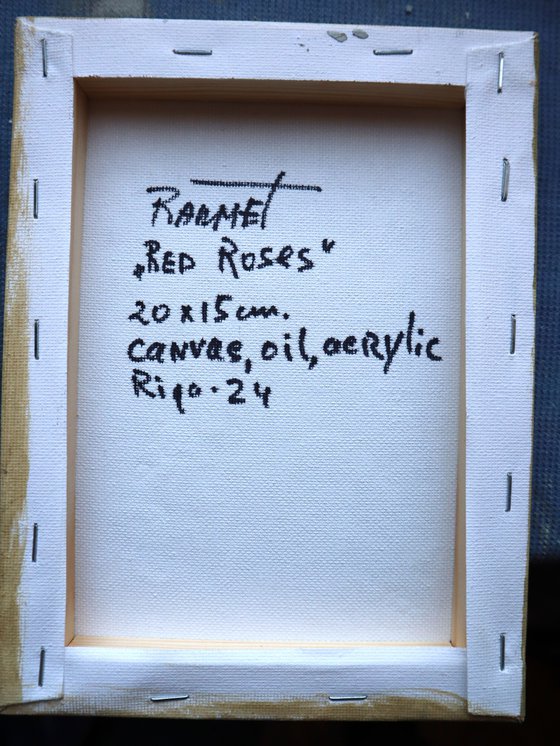 RADMET
„RED Roses“
20x15cm.
canvas, oil, acrylic
Riga. 24